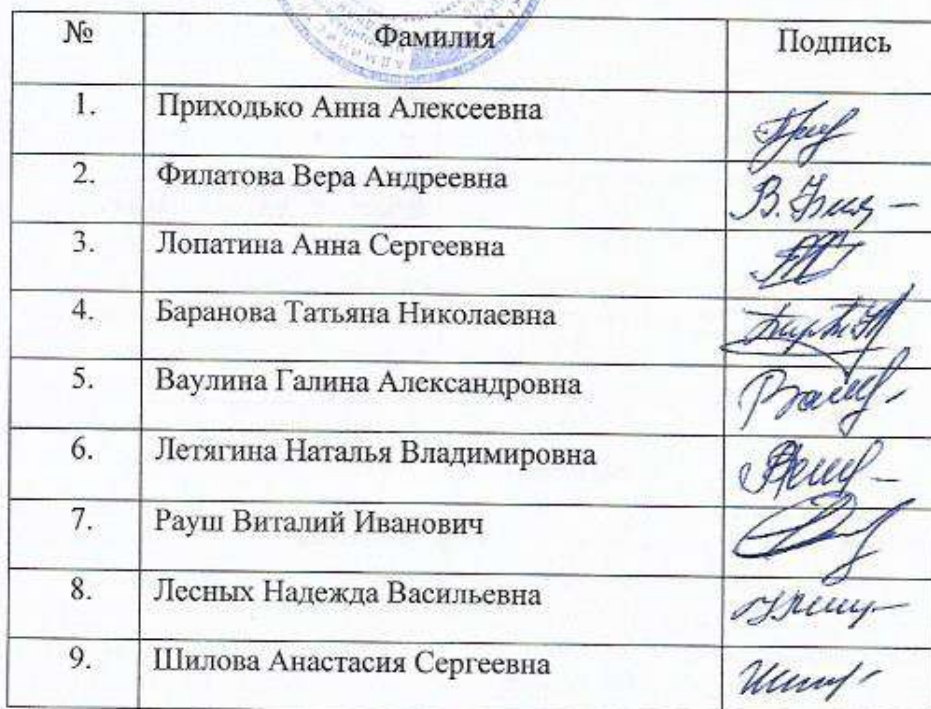 № Фамилия Подпись
1. Приходько Анна Алексеевна
2. Филатова Вера Андреевна
3. Лопатина Анна Сергеевна
4. Баранова Татьяна Николаевна
5. Ваулина Галина Александровна
6. Летягина Наталья Владимировна
7. Рауш Виталий Иванович
8. Лесных Надежда Васильевна
9. Шилова Анастасия Сергеевна